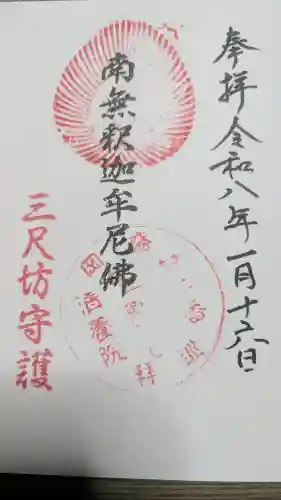 奉拝 令和八年一月十六日
南無釈迦牟尼佛
三尺坊守護